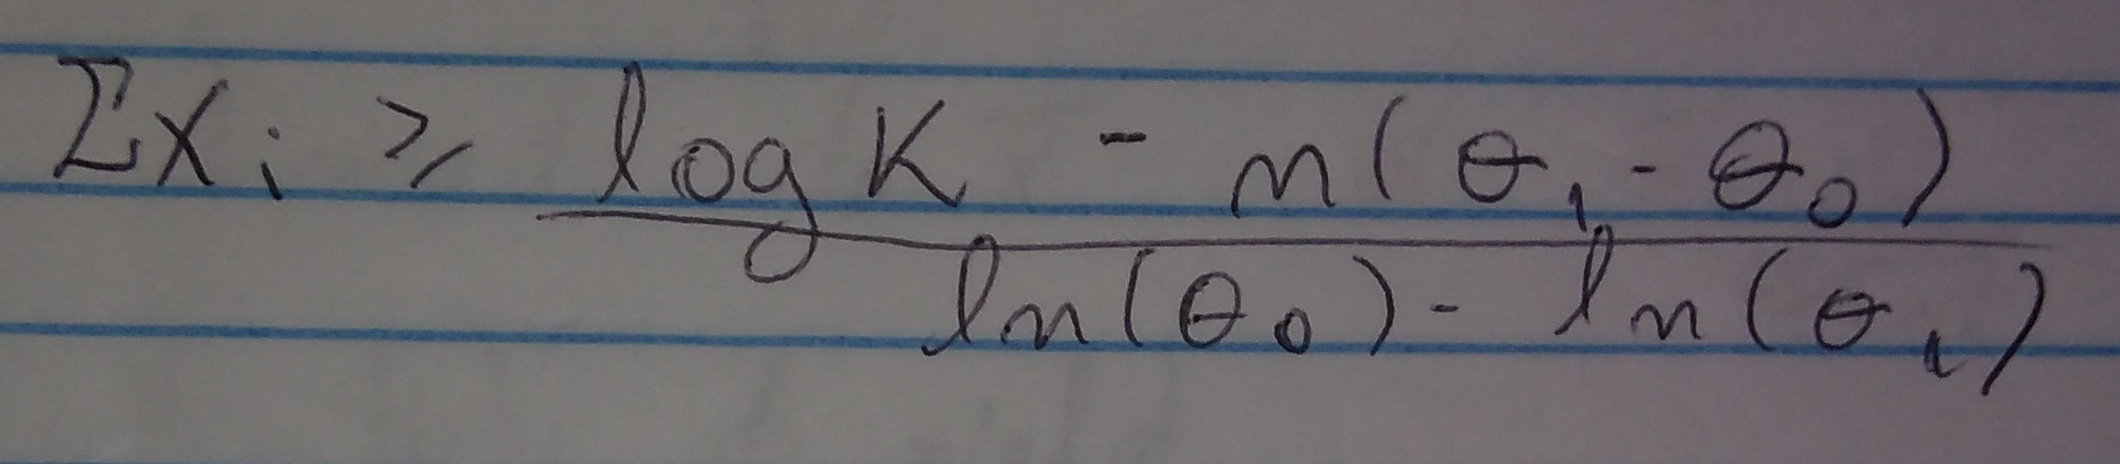 Σxᵢ ≥ (log K - n(θ₁ - θ₀)) / (ln(θ₀) - ln(θ₁))